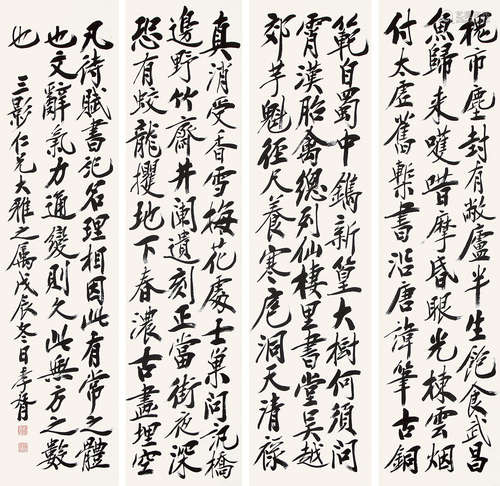 槐市塵封有敝廬半生飽食武昌
魚歸來嚄唶摩昏眼充棟雲烟
付太虛舊槧書沿唐諱筆古銅
範自蜀中鐫新篁大樹何須問
霄漢胎禽總列仙棲里書堂吳越
郊芋魁徑尺養寒庖洞天清祿
真消受香雪梅花處士巢問訊橋
邊野竹齋井闌遺刻正當街夜深
恐有蛟龍攫地下春濃古畫埋空
凡詩賦書記名理相因此有常之體
也文辭氣力通變則久此無方之數
也
三影仁兄大雅之屬戊辰冬日孝胥